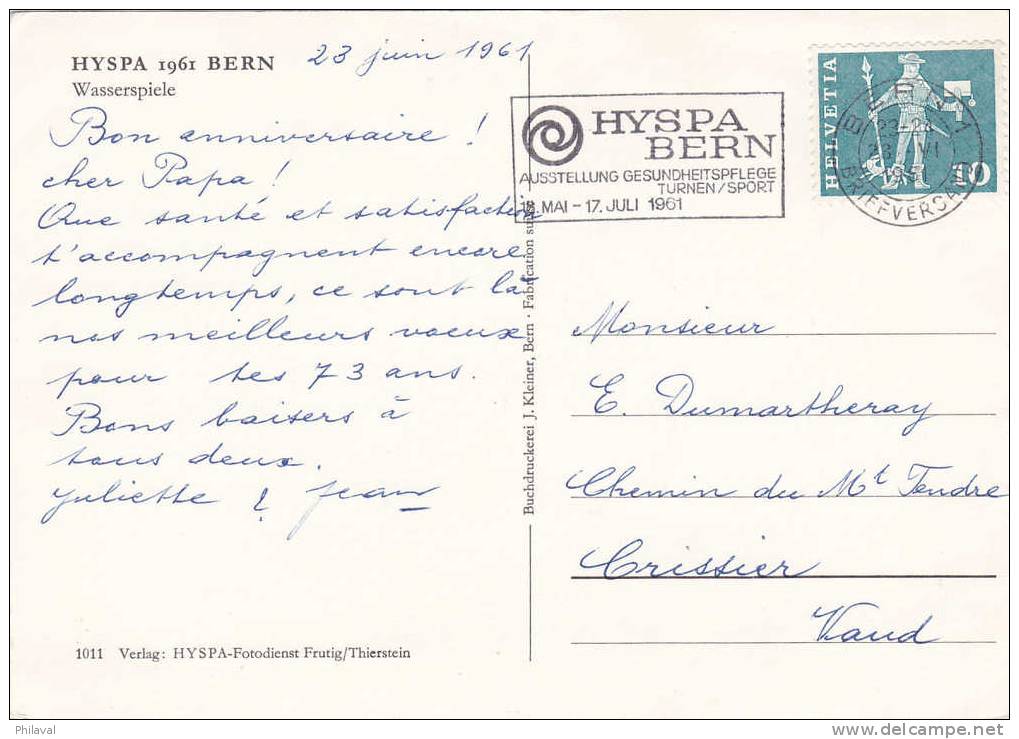 HYSPA 1961 BERN
Wasserspiele
23 juin 1961
Bon anniversaire !
cher Papa !
Que santé et satisfaction
t'accompagnent encore
longtemps, ce sont là
nos meilleurs voeux
pour tes 73 ans.
Bons baisers à
tous deux.
Juliette & Jean
1011 Verlag: HYSPA-Fotodienst Frutig/Thierstein
Buchdruckerei J. Kleiner, Bern · Fabrication suisse
HYSPA
BERN
AUSSTELLUNG GESUNDHEITSPFLEGE
TURNEN/SPORT
18. MAI - 17. JULI 1961
HELVETIA
10
BERN 1
23 VI
1961
BRIEFVERSAND
Monsieur
E. Dumartheray
Chemin du Mt Tendre
Crissier
Vaud
Philaval
www.delcampe.net